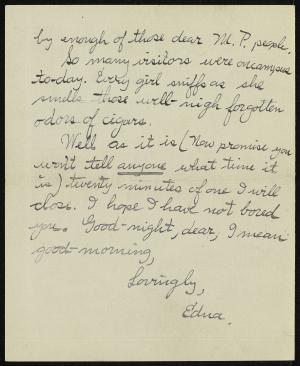 by enough of those dear M. P. people.
So many visitors were on campus
to-day. Every girl sniffs as she
smells those well-nigh forgotten
odors of cigars.
Well as it is (Now promise you
won't tell anyone what time it
is) twenty minutes of one I will
close. I hope I have not bored
you. Good-night, dear, I mean
good-morning,
Lovingly,
Edna.